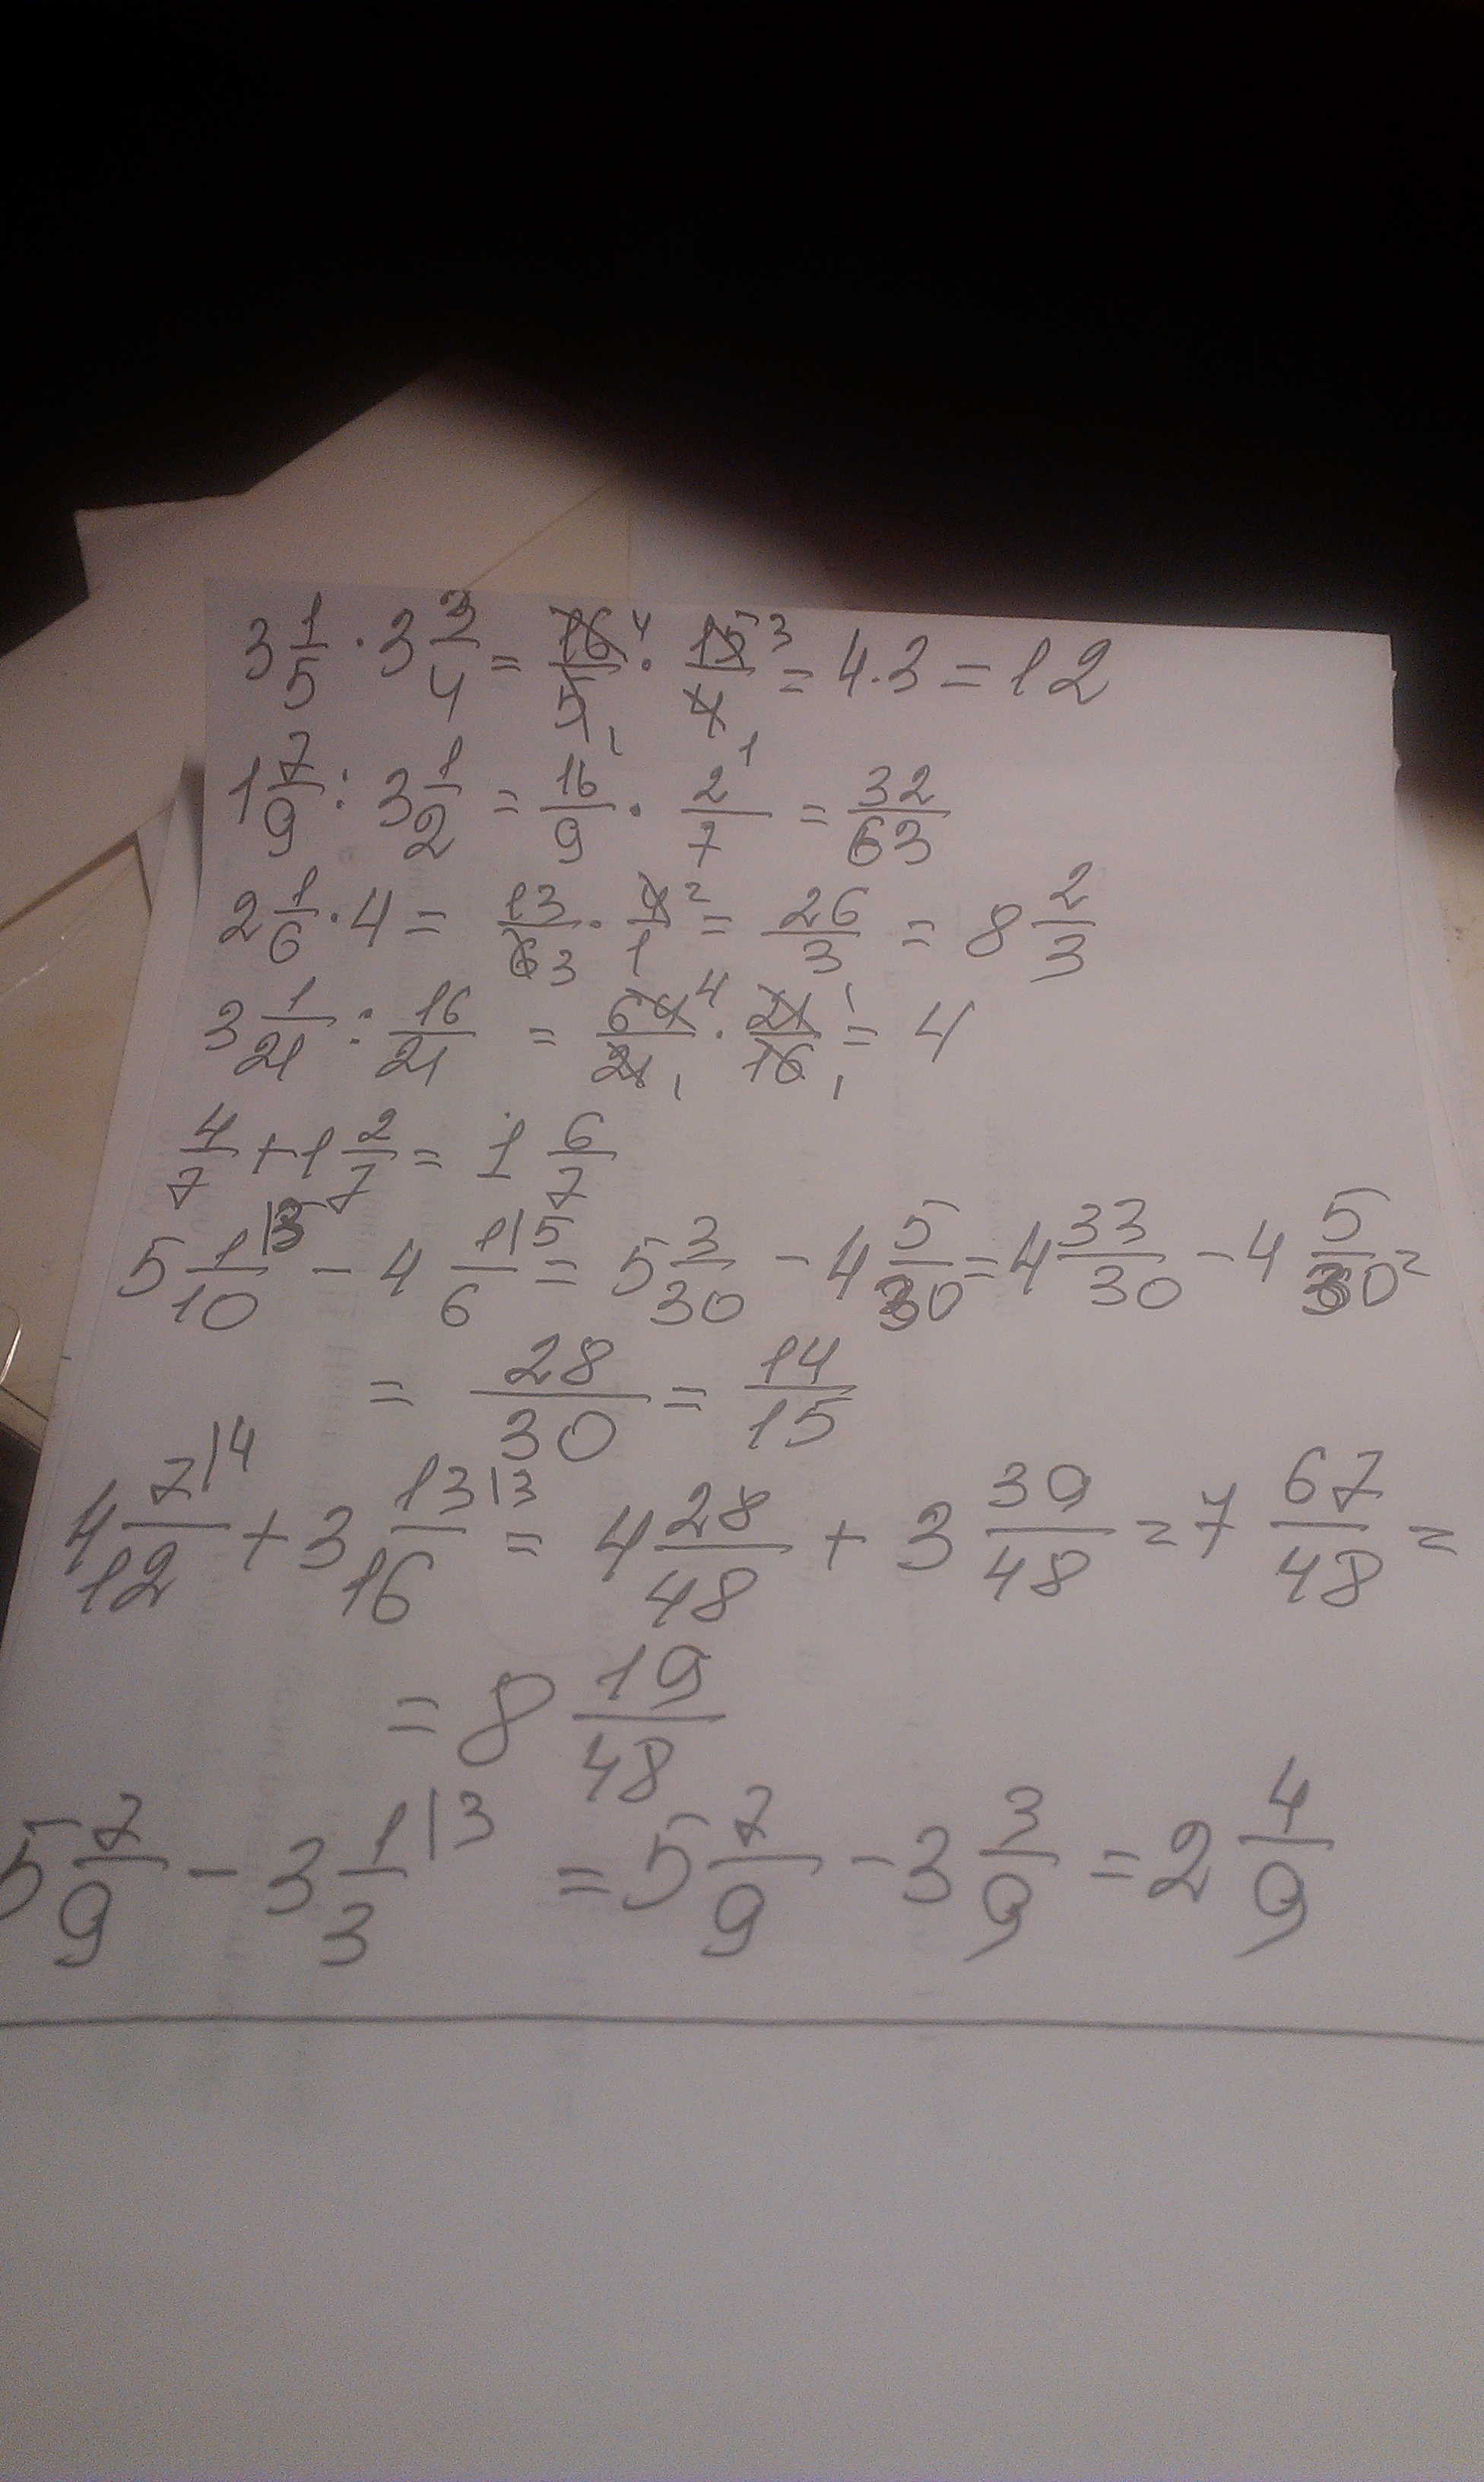 3 1/5 · 3 3/4 = 16/5 4 1 · 15/4 3 1 = 4·3 = 12
1 7/9 : 3 1/2 = 16/9 · 2/7 1 = 32/63
2 1/6 · 4 = 13/6 3 · 4/1 2 = 26/3 = 8 2/3
3 1/21 : 16/21 = 64/21 4 1 · 21/16 1 1 = 4
4/7 + 1 2/7 = 1 6/7
5 1/10 |3 − 4 1/6 |5 = 5 3/30 − 4 5/30 = 4 33/30 − 4 5/30 =
= 28/30 = 14/15
4 7/12 |4 + 3 13/16 |3 = 4 28/48 + 3 39/48 = 7 67/48 =
= 8 19/48
5 7/9 − 3 1/3 |3 = 5 7/9 − 3 3/9 = 2 4/9